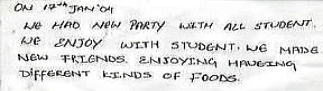 ON 17th JAN'04
WE HAD NEW PARTY WITH ALL STUDENT.
WE ENJOY WITH STUDENT. WE MADE
NEW FRIENDS. ENJOYING HAVEING
DIFFERENT KINDS OF FOODS.